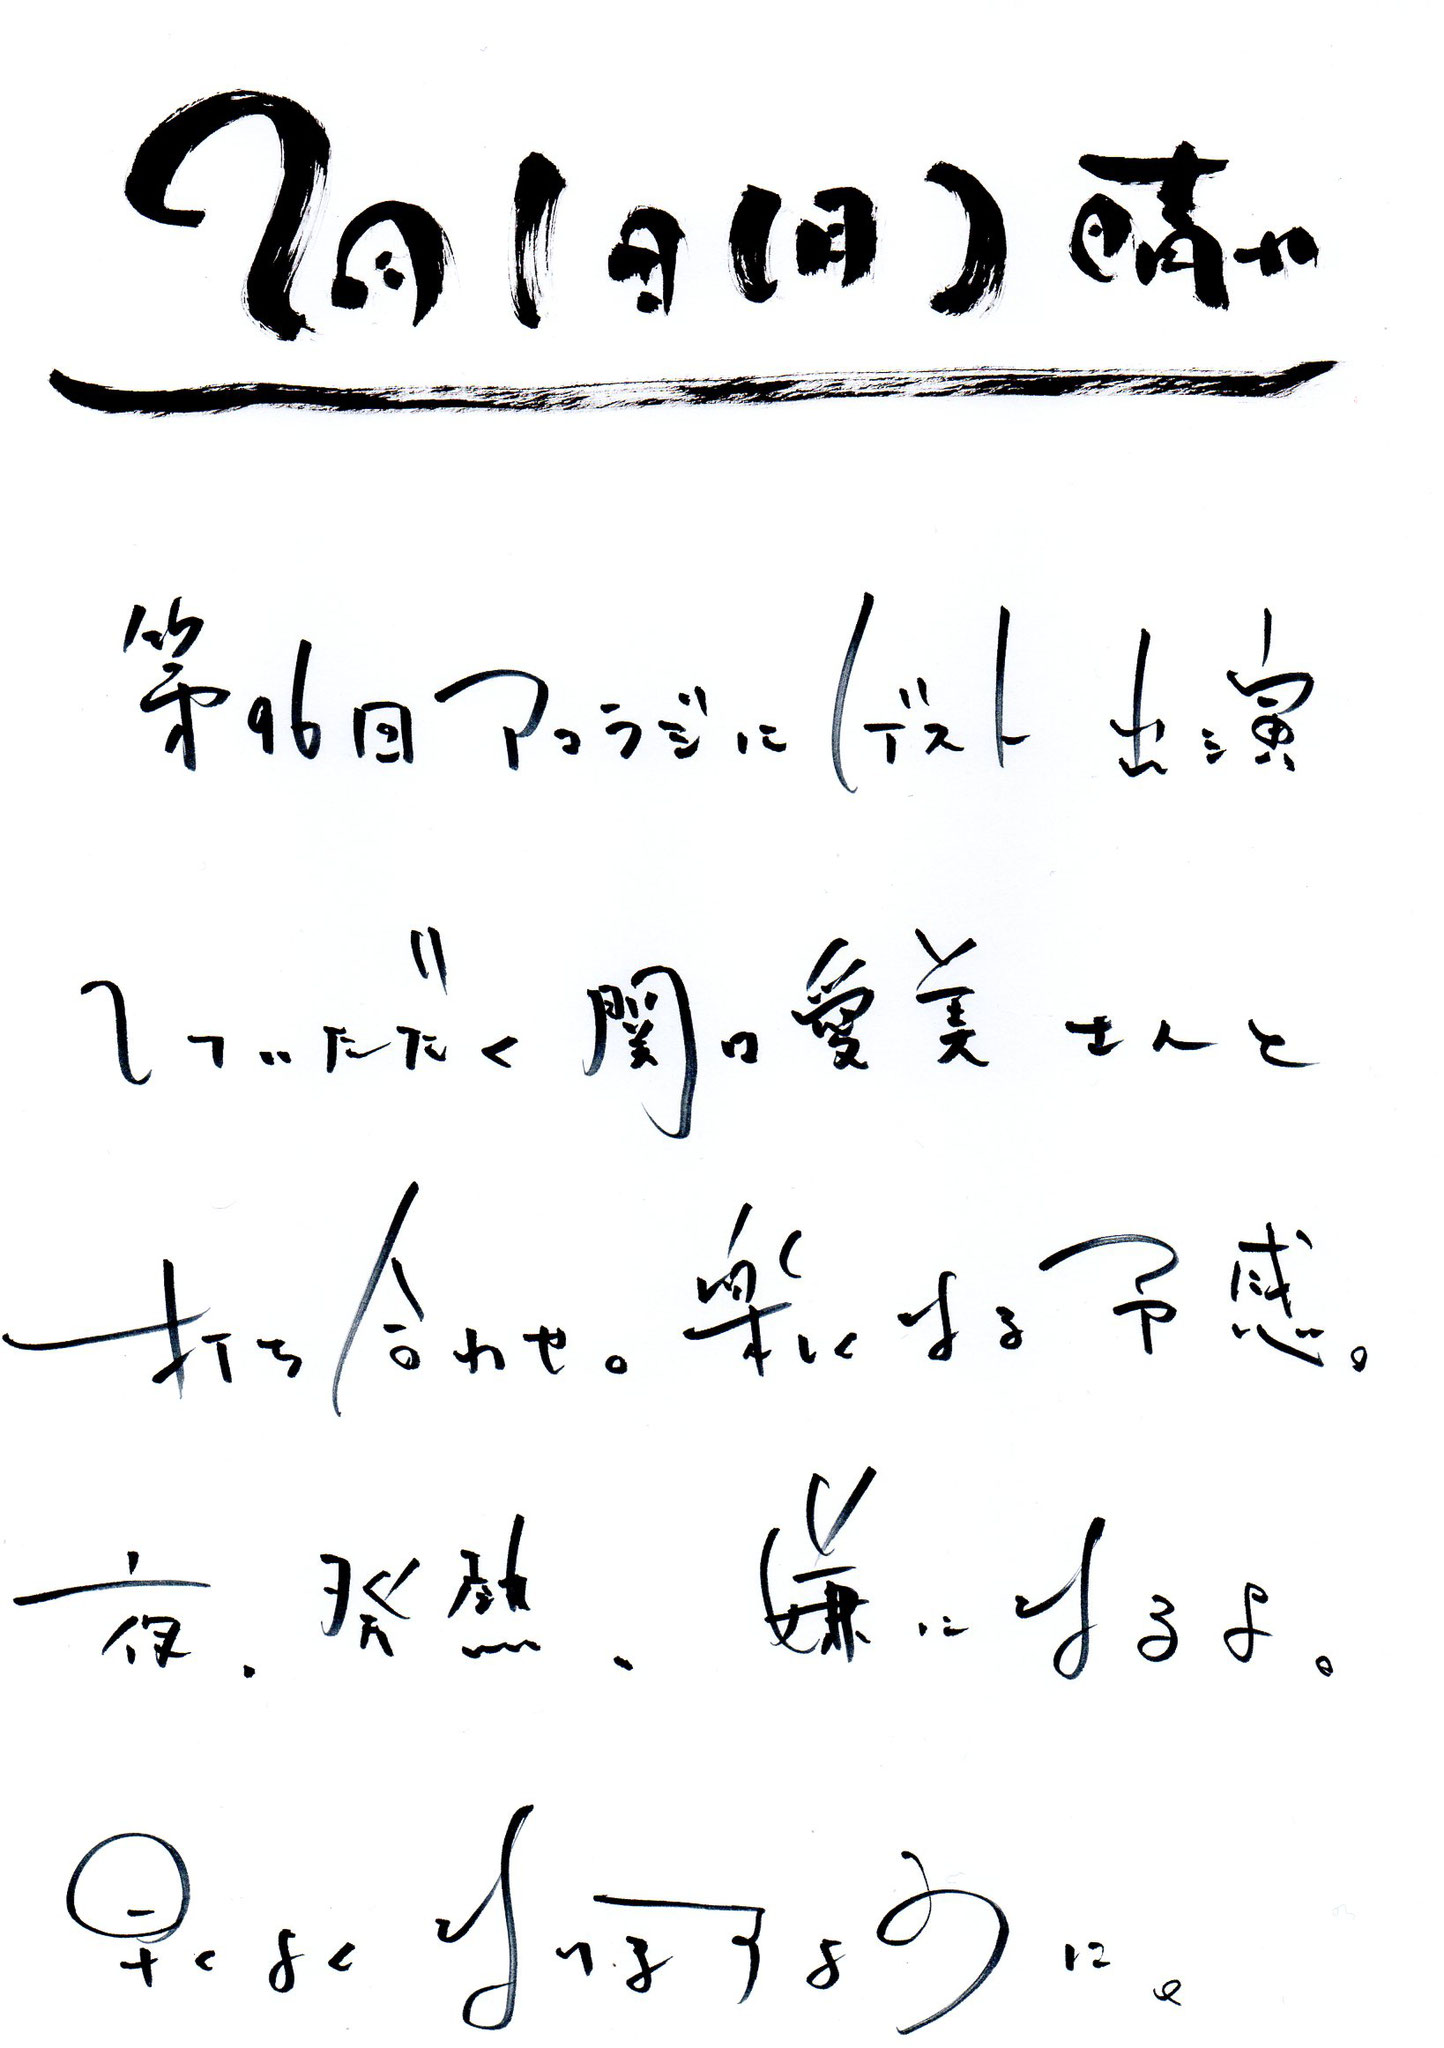 7月1日(日)晴れ
第96回アコラジにゲスト出演
していただく関口愛美さんと
打ち合わせ。楽しくなる予感。
夜、発熱、嫌になるよ。
早くよくなりますように。